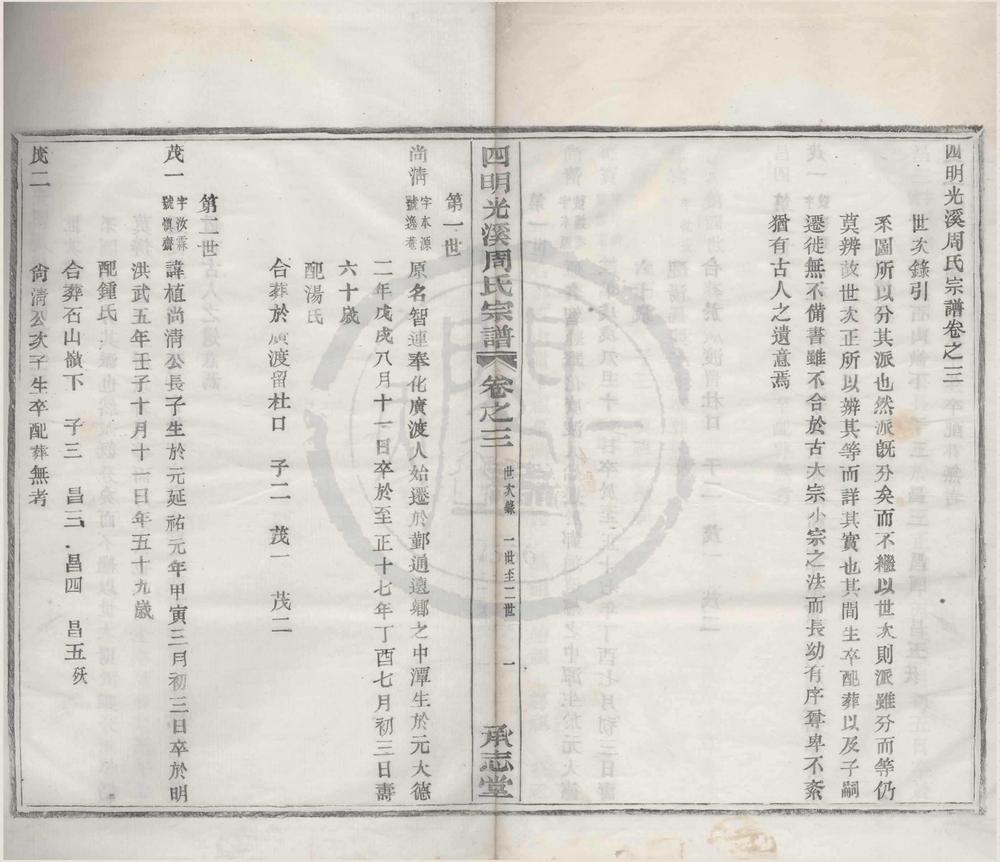 四明光溪周氏宗譜卷之三
世次錄引
系圖所以分其派也然派旣分矣而不繼以世次則派雖分而等仍
莫辨故世次正所以辨其等而詳其實也其間生卒配葬以及子嗣
遷徙無不備書雖不合於古大宗小宗之法而長幼有序尊卑不紊
猶有古人之遺意焉
四明光溪周氏宗譜 卷之三 世次錄 一世至二世 一 承志堂
第一世
尚淸 字本源 號逸菴 原名智連奉化廣渡人始遷於鄞通遠鄉之中潭生於元大德
二年戊戌八月十一日卒於至正十七年丁酉七月初三日壽
六十歲
配湯氏
合葬於廣渡留杜口 子二 茂一 茂二
第二世
茂一 字汝霖 號愼齋 諱植尚淸公長子生於元延祐元年甲寅三月初三日卒於明
洪武五年壬子十月十一日年五十九歲
配鍾氏
合葬石山嶺下 子三 昌三 昌四 昌五殀
茂二 尚淸公次子生卒配葬無考